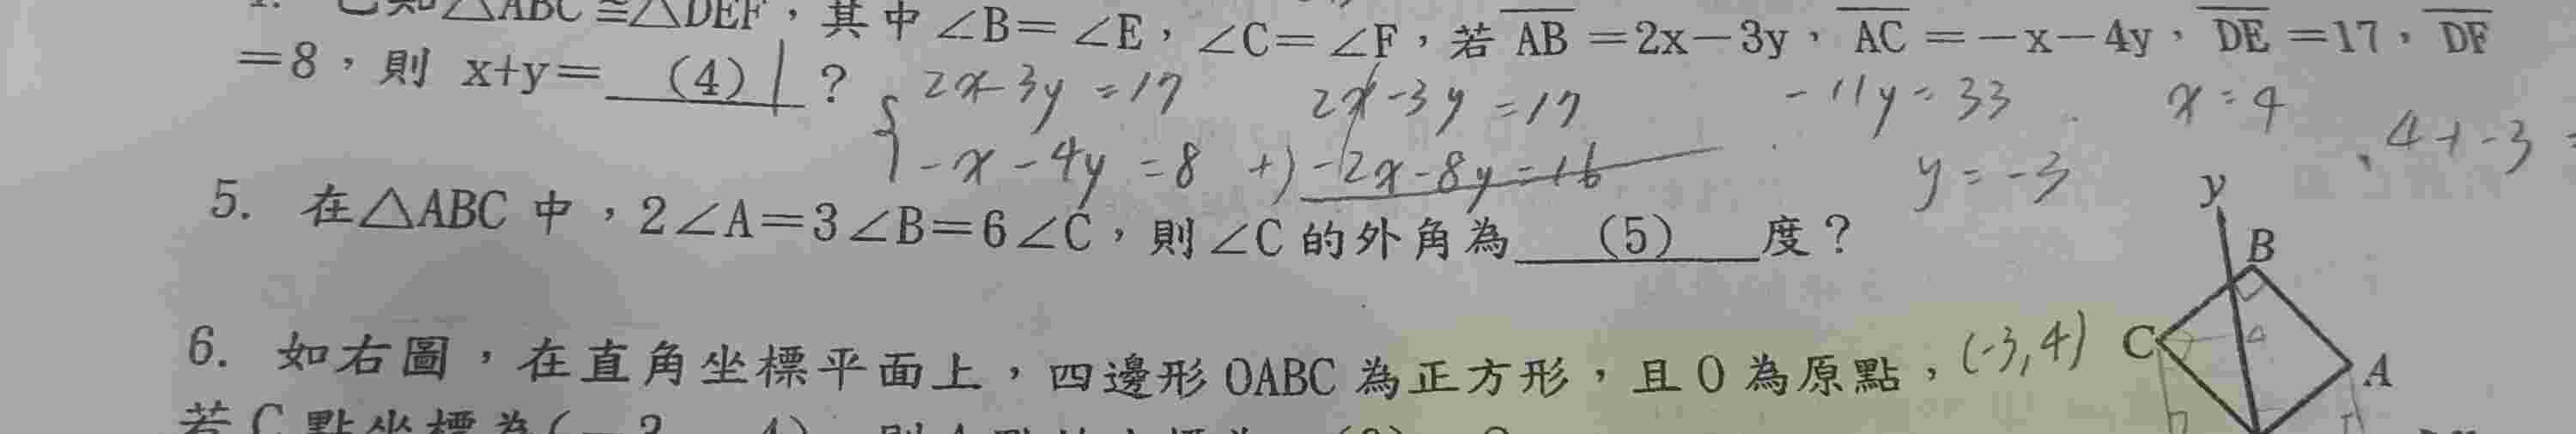 已知△ABC≅△DEF，其中∠B=∠E，∠C=∠F，若 AB=2x－3y，AC=－x－4y，DE=17，DF
=8，則 x+y= (4) 1 ？
2x-3y=17
-x-4y=8
2x-3y=17
+) -2x-8y=16
-11y=33
y=-3
x=4
4+-3=
5. 在△ABC 中，2∠A=3∠B=6∠C，則∠C 的外角為 (5) 度？
6. 如右圖，在直角坐標平面上，四邊形 OABC 為正方形，且 O 為原點，
(-3,4)
y
B
C
A
若 C 點坐標為(－3